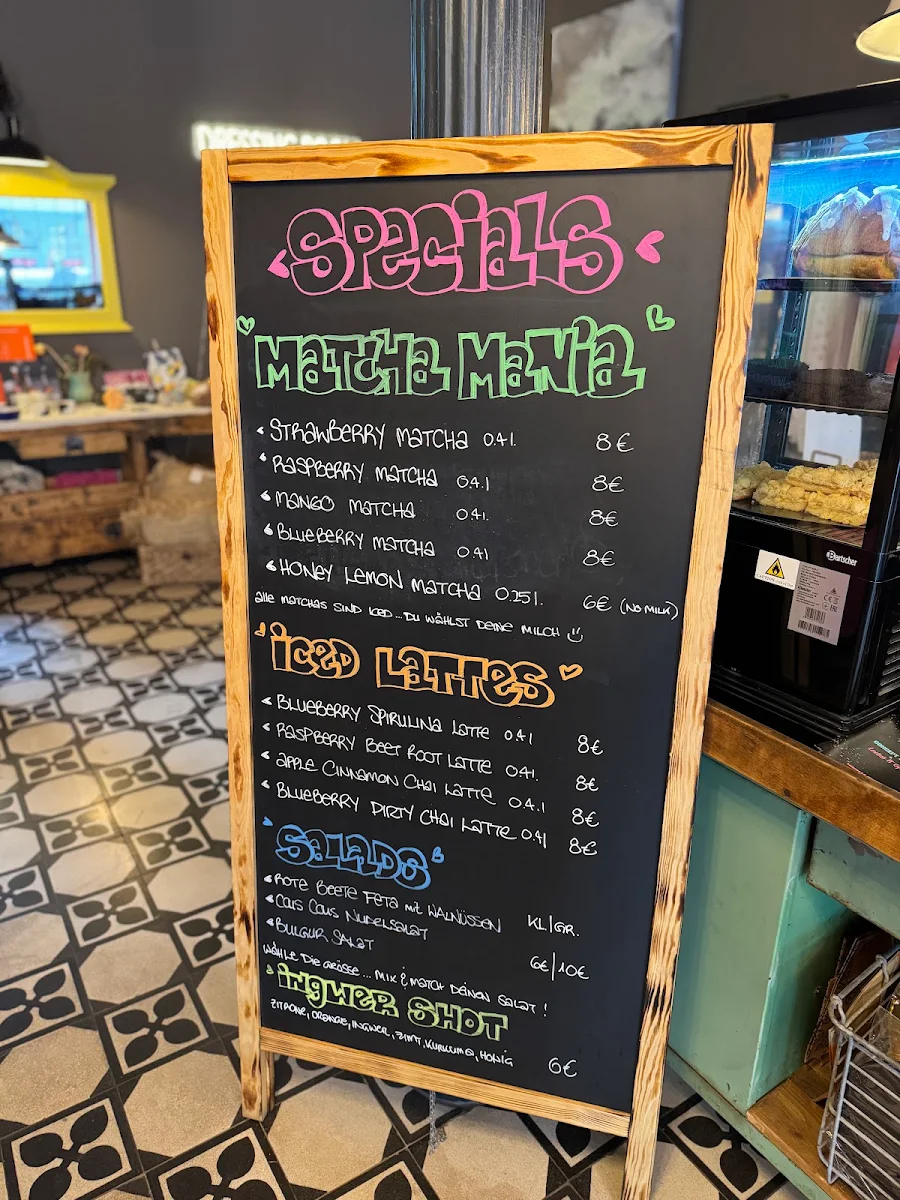 DRESSING ROOM
SPECIALS
MATCHA MANIA
STRAWBERRY MATCHA 0.4l. 8€
RASPBERRY MATCHA 0.4.l 8€
MANGO MATCHA 0.4l. 8€
BLUEBERRY MATCHA 0.4l 8€
HONEY LEMON MATCHA 0.25l. 6€ (NO MILK)
ALLE MATCHAS SIND ICED...DU WÄHLST DEINE MILCH
ICED LATTES
BLUEBERRY SPIRULINA LATTE 0.4l 8€
RASPBERRY BEET ROOT LATTE 0.4l. 8€
APPLE CINNAMON CHAI LATTE 0.4.l 8€
BLUEBERRY DIRTY CHAI LATTE 0.4l 8€
SALADS
ROTE BEETE FETA MIT WALNÜSSEN KL|GR.
COUS COUS NUDELSALAT
BULGUR SALAT 6€|10€
WÄHLE DIE GRÖSSE... MIX & MATCH DEINEN SALAT!
INGWER SHOT
ZITRONE, ORANGE, INGWER, ZIMT, KURKUMA, HONIG 6€
Bartscher